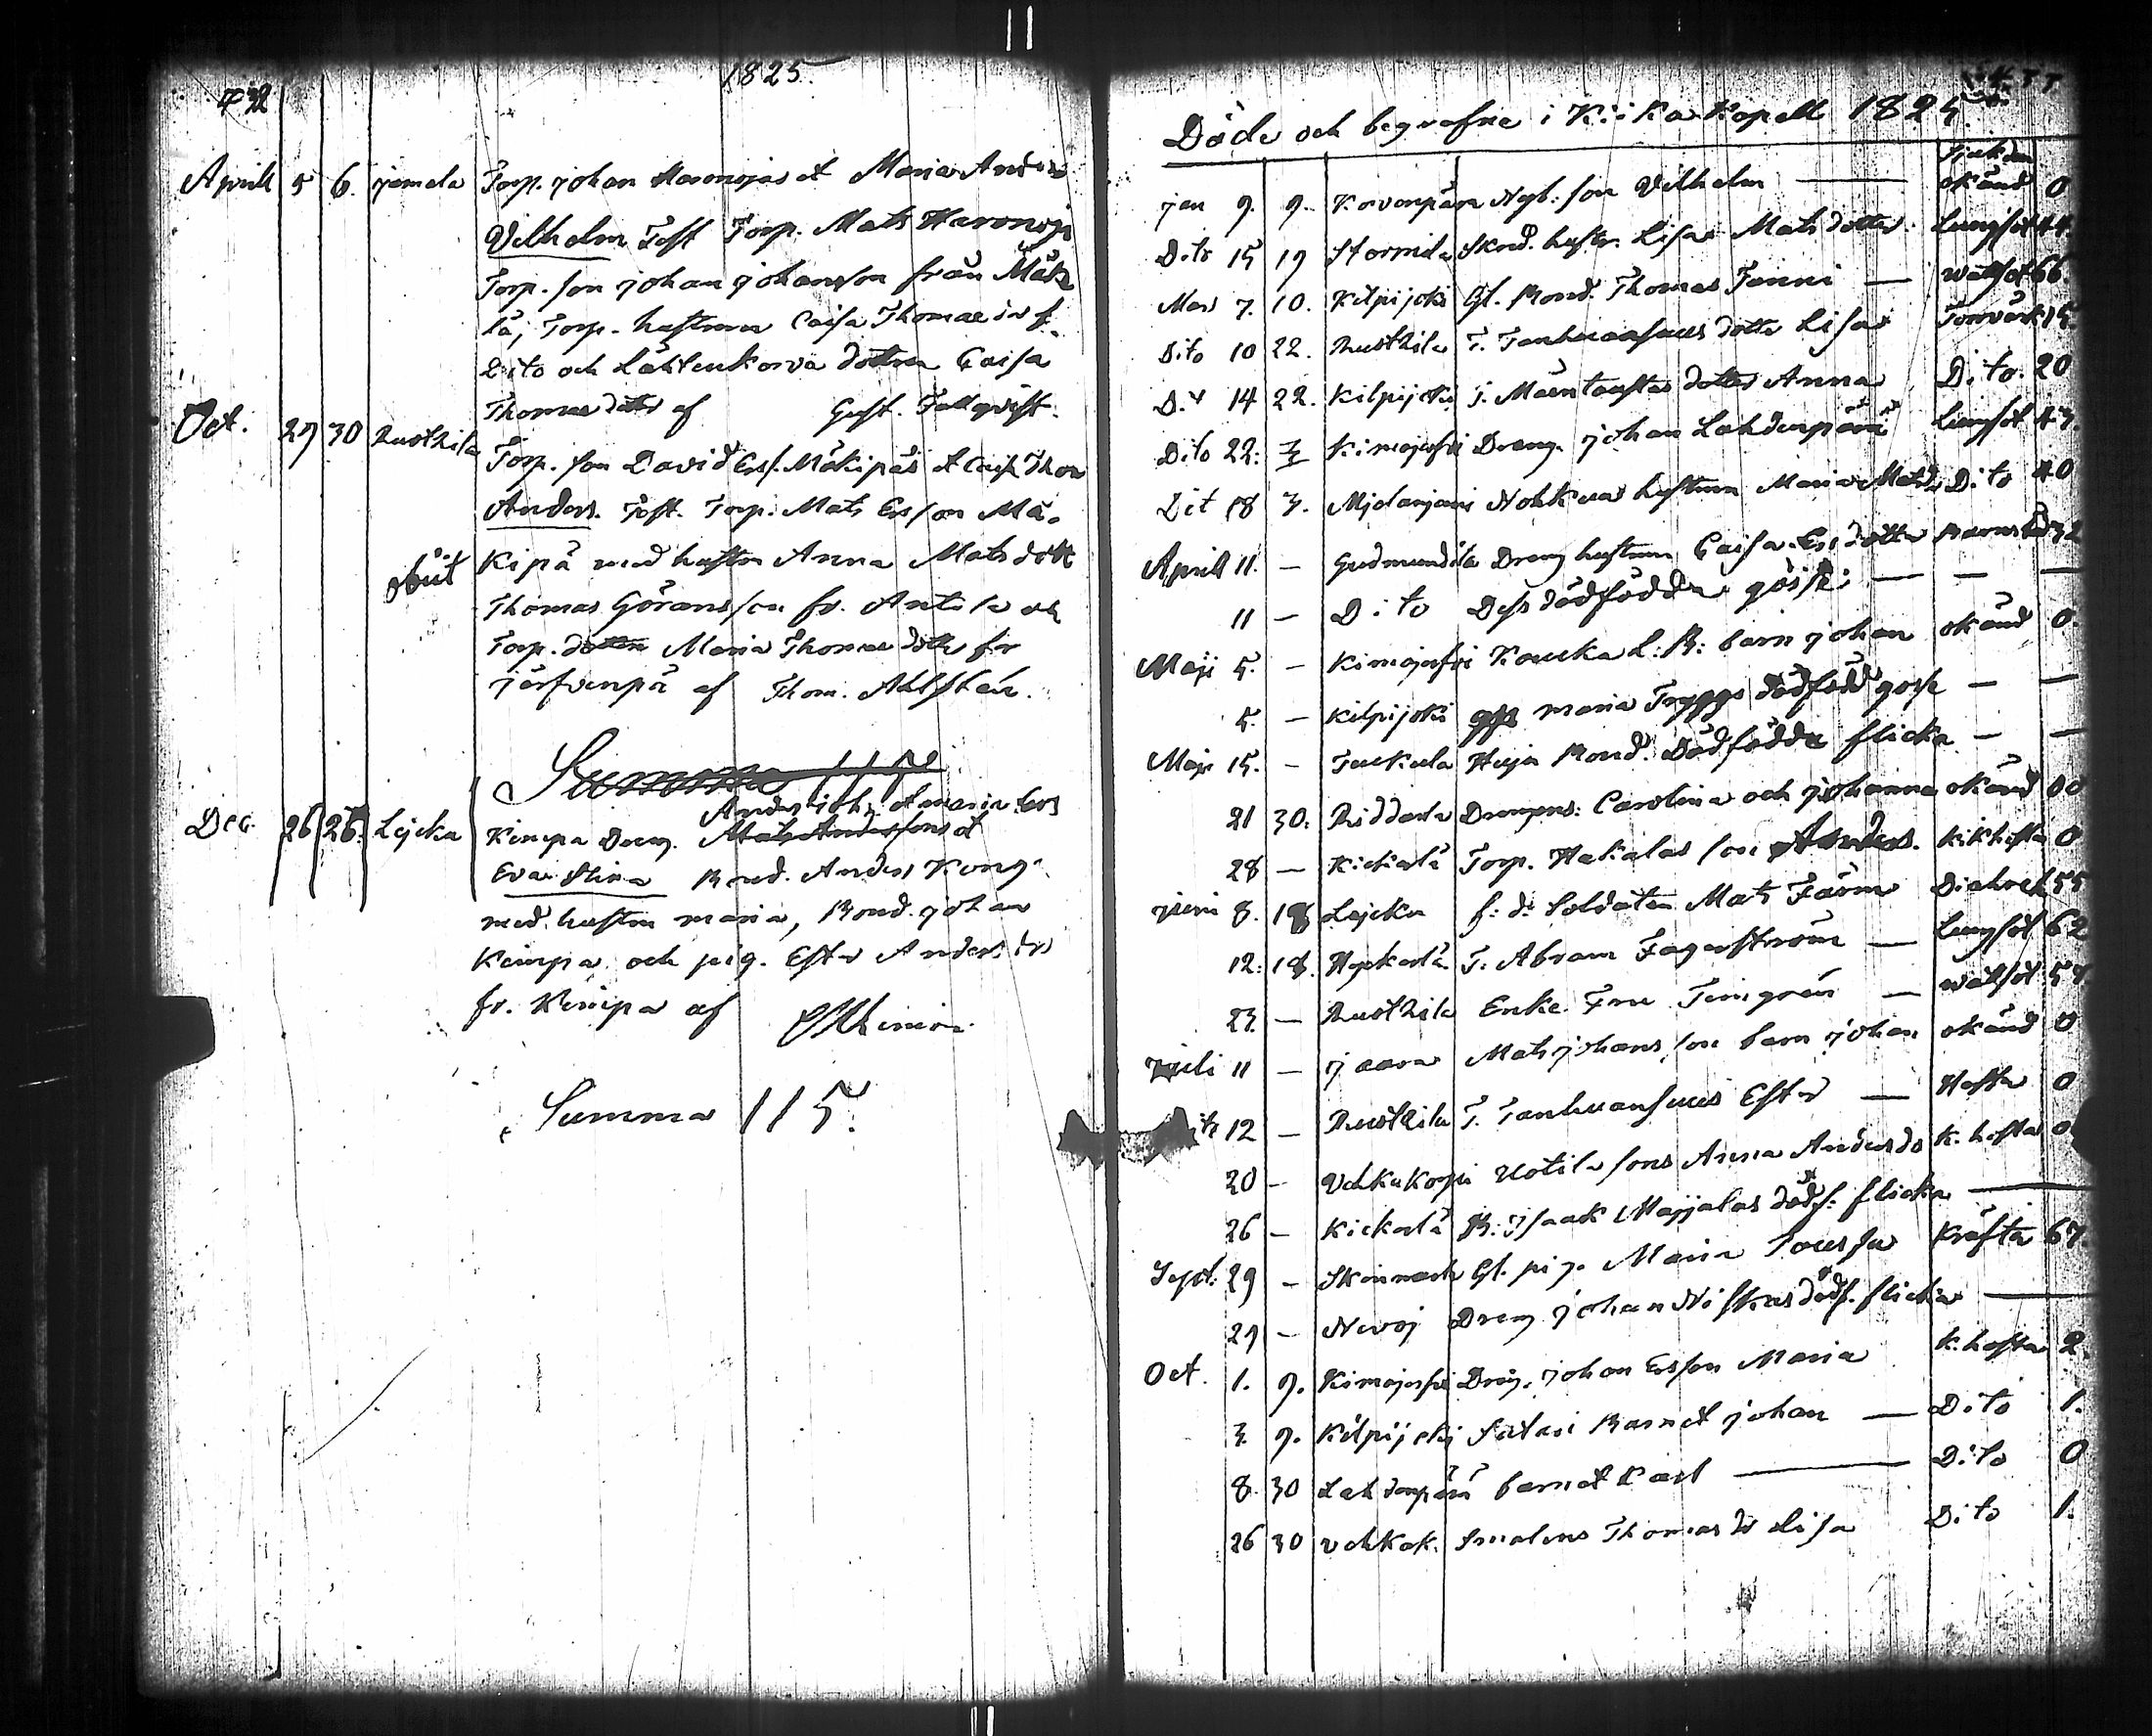 1825.
Aprill 5 6. jemela Torp. johan et Maria Anders
Vilhelm Test Torp. Mats
Torp. son johan johansson från
lä, Torp. hustrun Caisa Thomae
Dito och Lähteenkorva dottren Caisa
Thomae dotter af Gust. Fallqvist.
Oct. 29 30 Rusthila
Torp. son David Ers. Mäkipäs et Caisa Thom
Anders. Test. Torp. Mats Ersson Mä-
obiit kipä med hustru Anna Mats dott
Thomas Göransson fr. Antila och
Torp. dottren Maria Thomae dotter fr
järfvenpä af Thom. Ahlstén.
Summa 115
Anders joh. et maria Ers
Dec. 26 26. Lejcka Kimpa Dreng. Mats Anderssons et
Eva Stina Bond. Anders Kong
med hustru maria, Bond. johan
Kimpa och pig. Ester Anders dr
fr. Kimpa af
Summa 115.
Döde och begrafne i Kiika Kapell 1825.
Sjukdom
jan 9. 9. Korvenpära Nyb. son Vilhelm — okänd 0
Dito 15 19 Stormila Sknd. hustr. Lisa Mats dotter Lungsot 44.
Mars 7. 10. Kilpijoki Gl. Bond. Thomas Fanni — Wattsot 66
Dito 10 22. Rusthila T. Tanhuansuus dotter Lisa Torrvärk 15.
D:o 14 22. Kilpijoki T. Mäentaustas dotter Anna Dito. 20
Dito 22: 3 Kimajerfvi Dreng. johan Lahdenpärä Lungsot 43.
Dit 18 3. Hustrun Maria Matsdr Dito 40
Aprill 11. — Gudmundila Dreng hustrun Caisa Ers dotter Barnsbörd 32
11 — Dito Dess dödfödda gosse — — —
Maji 5. — Kimajerfvi Kouuka L: B: barn johan okänd 0.
5. — Kilpijoki maria Tryggs dödfödd gosse — —
Maji 15. — Tuckula Heja Bond. Dödfödda flicka — —
21 30. Riddarla Drengens: Carolina och johanna okänd 00
28 — Kickarla Torp. Hakalas son Anders. kikhosta 0
juni 8. 18 Lejcka f: d: Soldaten Mats Färm 55
12: 18. T. Abram Fagerström — Lungsot 62
23. — Rusthila Enke Fru Timgrén — wattsot 57.
juli 11 — jaara Mats johans son barn johan okänd 0
12 — Rusthila T. Tanhuansuus Ester — Hosta 0
20 — Vehkakorpi Uotila sons Anna Anders dr K. hosta 0
26 — Kickarla B: Isaak Majjalas dödf. flicka —
Sept. 29 — Skinnarla Gl. pig. Maria Sousja Kräfta 67.
29 — Novoj Dreng johan Niskas dödf. flicka —
Oct. 1. 9. Kimajerfvi Dräng. johan Ersson Maria K. hosta 2.
3. 9. Kilpijoki Satari Barnet johan — Dito 1.
8. 30 Lahdenpärä barnet Karl — Dito 0
26 30 vehkak. Thomas dr Lisa Dito 1.